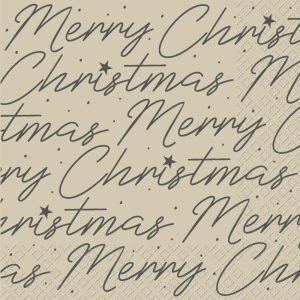 Merry Christ
Christmas M
tmas Merry C
ry Christmas
hristmas Merr
as Merry Chri